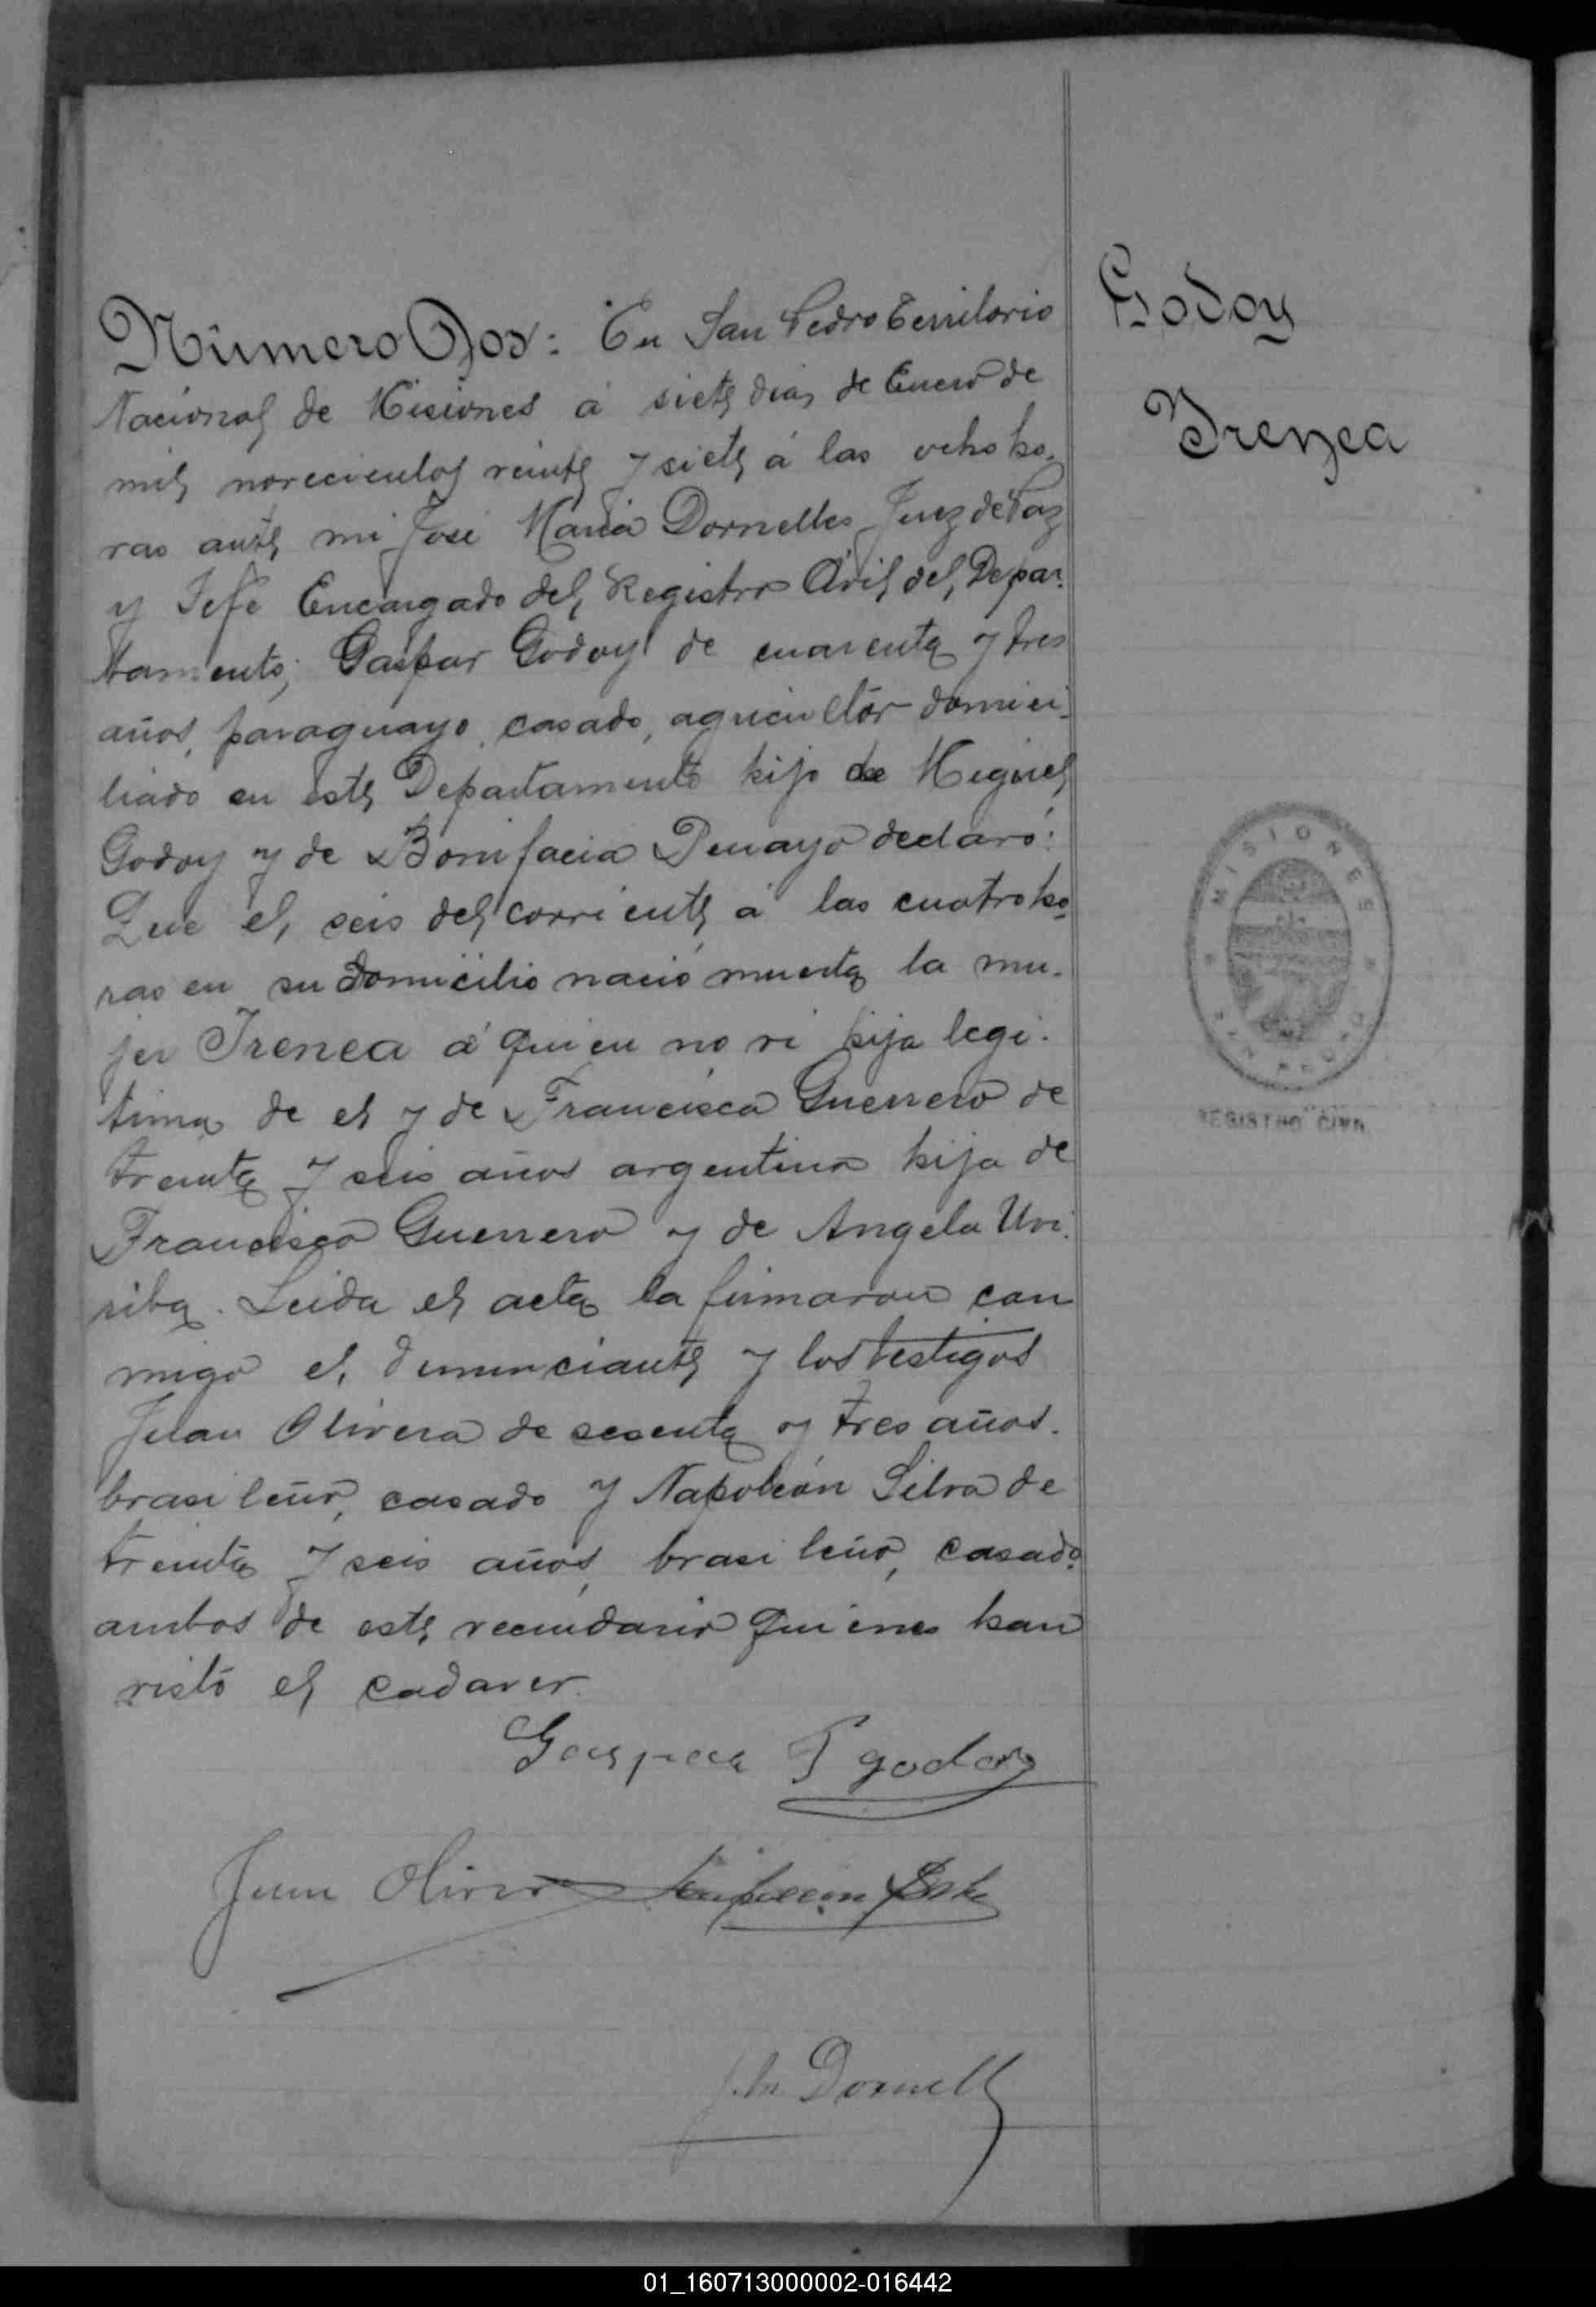 Número Dos: En San Pedro Territorio
Nacional de Misiones á siete dias de Enero de
mil novecientos veinte y siete á las ocho ho-
ras ante mi José Maria Dornelles Juez de Paz
y Jefe Encargado del Registro Civil del Depar-
tamento; Gaspar Godoy de cuarenta y tres
años, paraguayo, casado, agricultor domici-
liado en este Departamento hijo de Miguel
Godoy y de Bonifacia Denayo declaró:
Que el seis del corriente á las cuatro ho-
ras en su domicilio nació muerta la mu-
jer Irenea á quien no vi hija legi-
tima de el y de Francisca Guerrero de
treinta y seis años argentina hija de
Francisco Guerrero y de Angela Uri-
riba. Leida el acta la firmaron con
migo el denunciante y los testigos
Juan Olivera de sesenta y tres años.
brasileño, casado y Napoleón Silva de
treinta y seis años, brasileño, casado.
ambos de este vecindario quienes han
visto el cadaver.
Gaspar T godoy
Juan Olivera Napoleon Silva
J. M. Dornell
Godoy
Irenea
MISIONES
SAN PEDRO
REGISTRO CIVIL
01_160713000002-016442